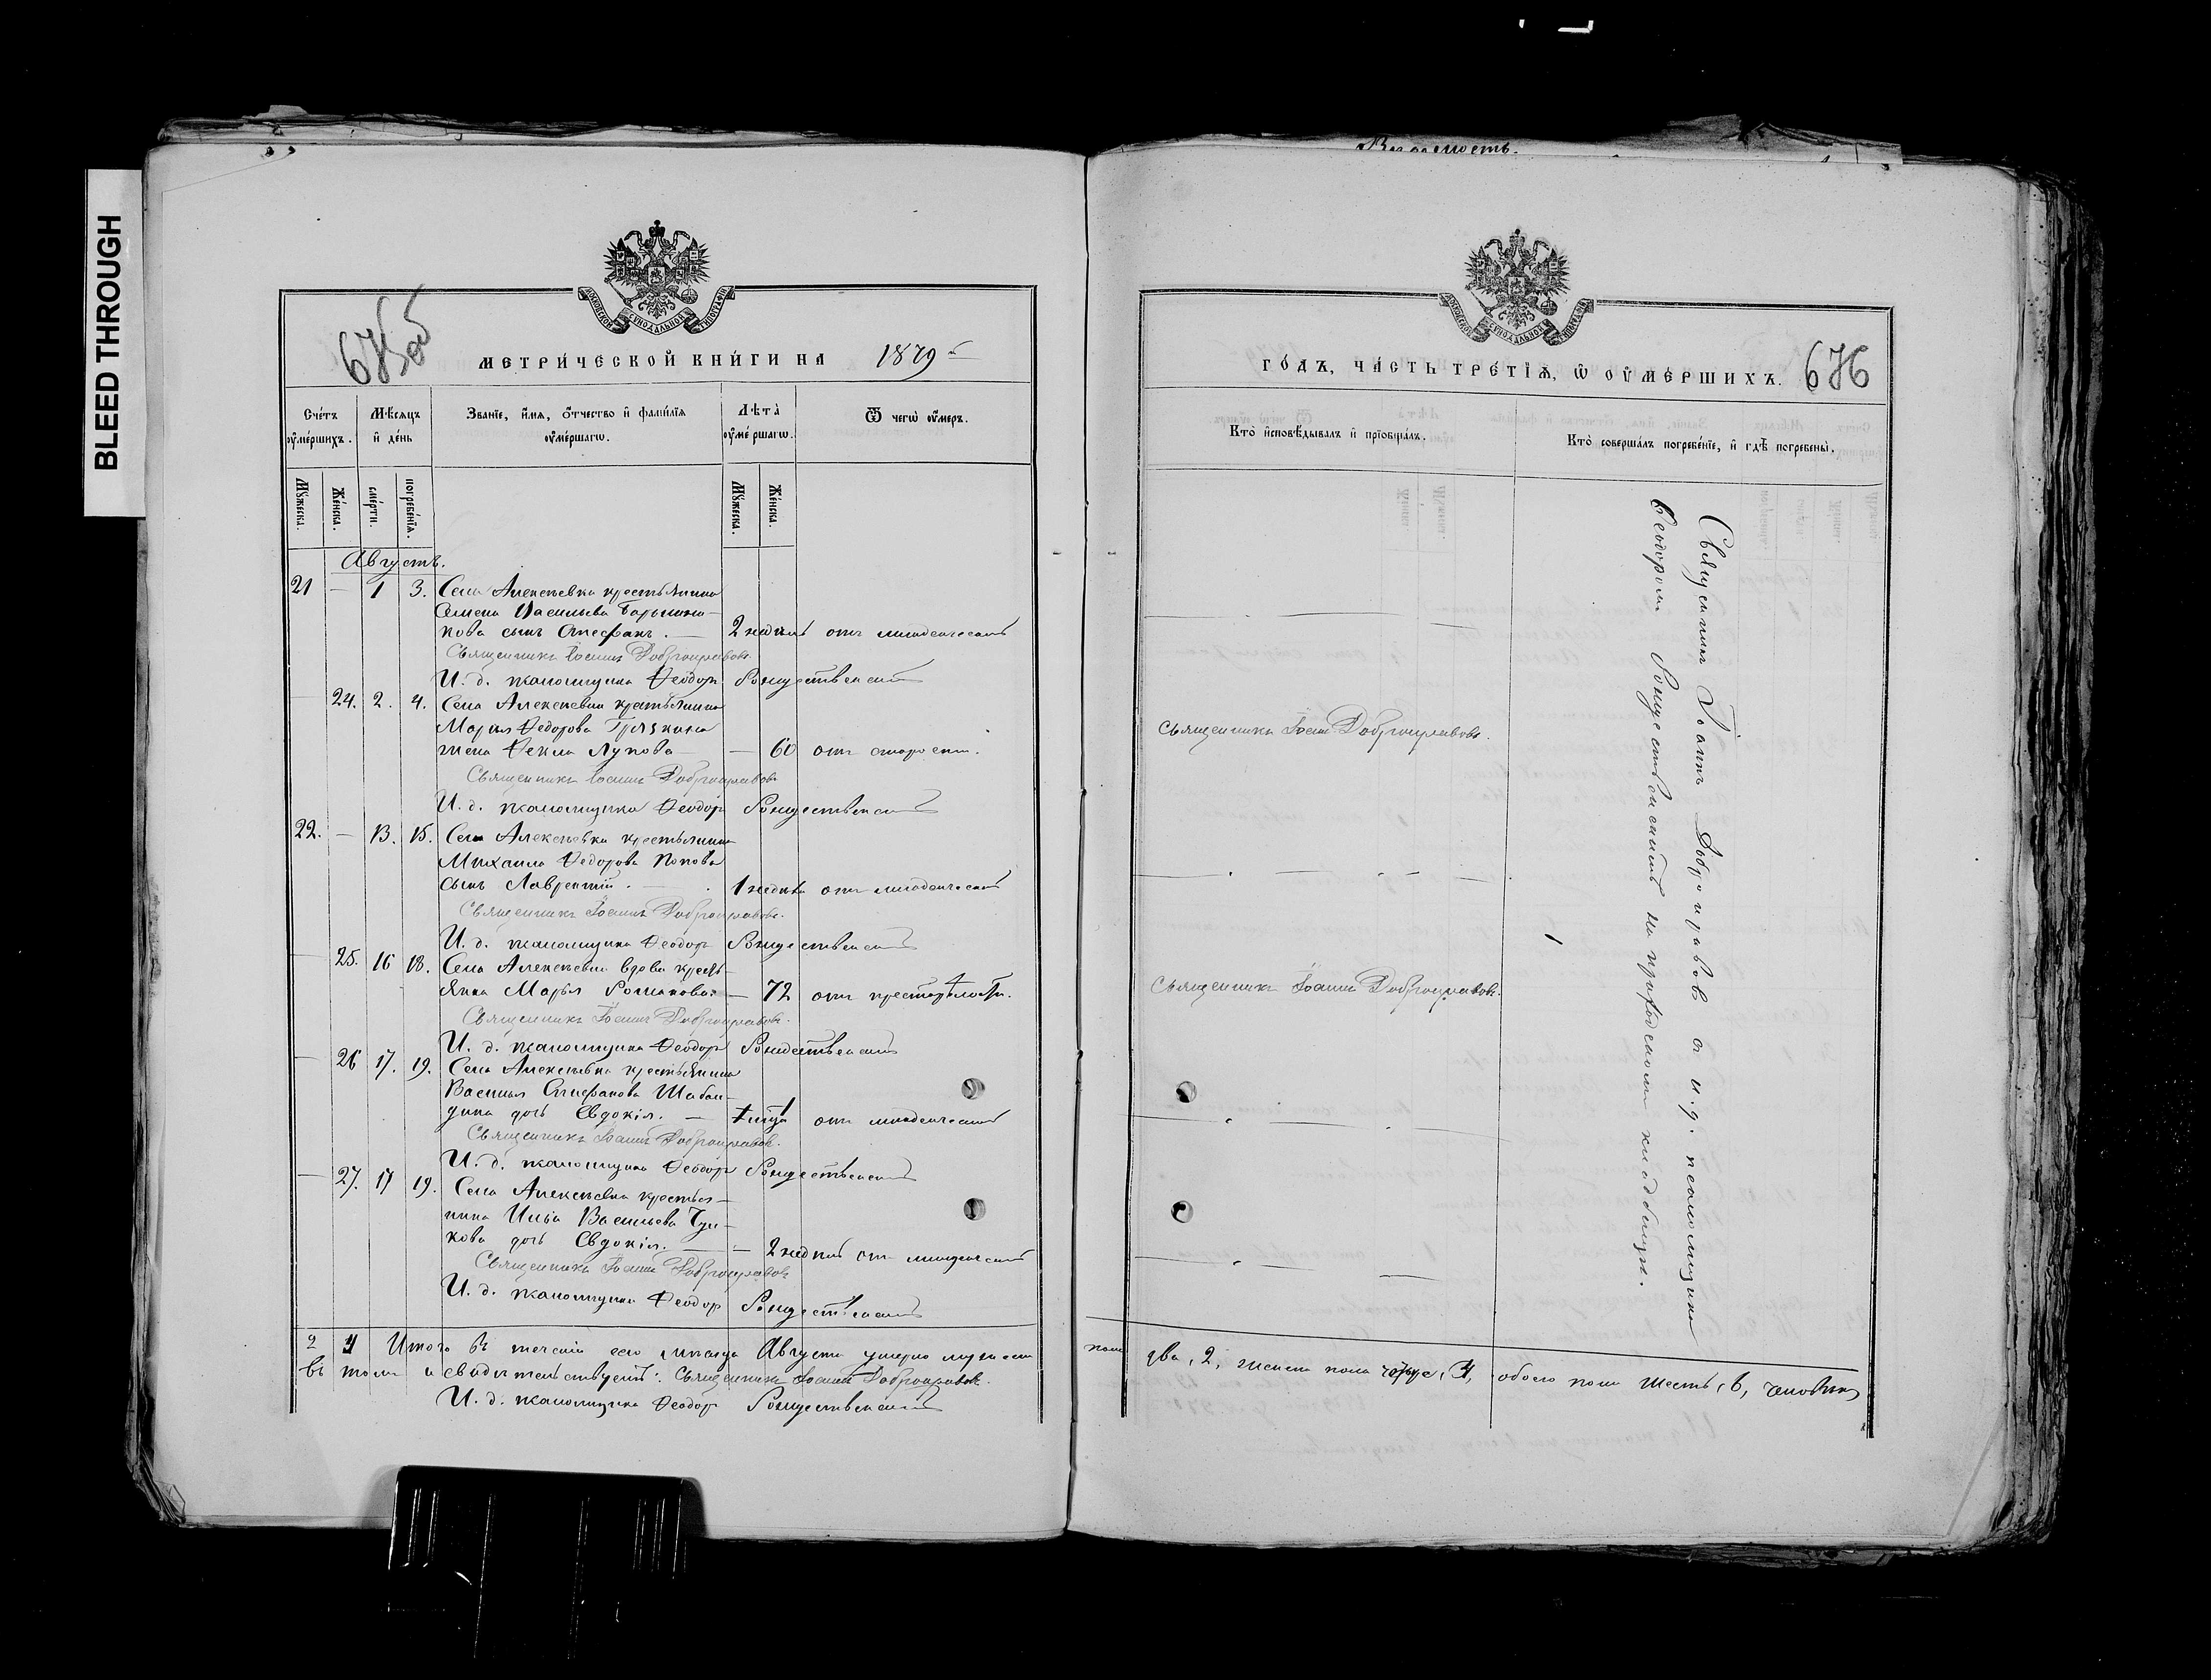 BLEED THROUGH
МОСКОВСКОЙ СУНОДАЛЬНОЙ ТИПОГРАФІИ
675 об
МЕТРИ́ЧЕСКОЙ КНИ́ГИ НА 1879 й
Сче́тъ ᲂу҆ме́ршихъ.
Мѣ́сяцъ и҆ де́нь
Зва́нїе, и҆́мѧ, ѻ҆́тчество и҆ фами́лїѧ ᲂу҆ме́ршагѡ.
Лѣта̀ ᲂу҆ме́ршагѡ.
Ѿ чегѡ̀ ᲂу҆́меръ.
Мꙋ́жеска.
Же́нска.
сме́рти.
погребе́нїѧ.
Мꙋ́жеска.
Же́нска.
Августъ.
21 — 1 3. Села Алексѣевки крестьянина
Семена Васильева
кова сынъ Стефанъ. — 2 недѣль отъ младенческой
Священникъ Іоаннъ Добронравовъ
И. д. псаломщика Ѳеодоръ Рождественскій
— 24. 2. 4. Села Алексѣевки крестьянина
Марка Ѳедорова Грязнина
жена Ѳекла Лукова — — 60 отъ старости.
Священникъ Іоаннъ Добронравовъ
И. д. псаломщика Ѳеодоръ Рождественскій
22. — 13. 15. Села Алексѣевки крестьянина
Михаила Ѳедорова Попова
сынъ Лаврентій. — 1 недѣли отъ младенческой
Священникъ Іоаннъ Добронравовъ.
И. д. псаломщика Ѳеодоръ Рождественскій
— 25. 16 18. Села Алексѣевки вдова кресть-
янка Марья Романова — 72 отъ престарѣлости.
Священникъ Іоаннъ Добронравовъ.
И. д. псаломщика Ѳеодоръ Рождественскій
— 26 17. 19. Села Алексѣевки крестьянина
Василья Стефанова Шабал-
дина дочь Евдокія. — отъ младенческой
Священникъ Іоаннъ Добронравовъ.
И. д. псаломщика Ѳеодоръ Рождественскій
— 27. 17 19. Села Алексѣевки крестья-
нина Ильи Васильева
кова дочь Евдокія. — — 2 недѣль отъ младенческой
Священникъ Іоаннъ Добронравовъ
И. д. псаломщика Ѳеодоръ Рождественскій
2 4 Итого въ теченіи сего мѣсяца Августа умерло мужеска
въ томъ и свидѣтельствуемъ: Священникъ Іоаннъ Добронравовъ.
И. д. псаломщика Ѳеодоръ Рождественскій
Вѣдомость.
МОСКОВСКОЙ СУНОДАЛЬНОЙ ТИПОГРАФІИ
ГО́ДЪ, ЧА́СТЬ ТРЕ́ТЇѦ, Ѽ ОУ҆МЕ́РШИХЪ. 676
Кто̀ и҆сповѣ́дывалъ и҆ прїѡбща́лъ.
Кто̀ соверша́лъ погребе́нїе, и҆ гдѣ̀ погребены̀.
Священникъ Іоаннъ Добронравовъ.
Священникъ Іоаннъ Добронравовъ.
Священникъ Іоаннъ Добронравовъ съ и. д. псаломщика
Ѳеодоромъ Рождественскимъ на приходскомъ кладбищѣ.
пола два, 2, женска пола четыре, 4, обоего пола шесть, 6, человѣкъ